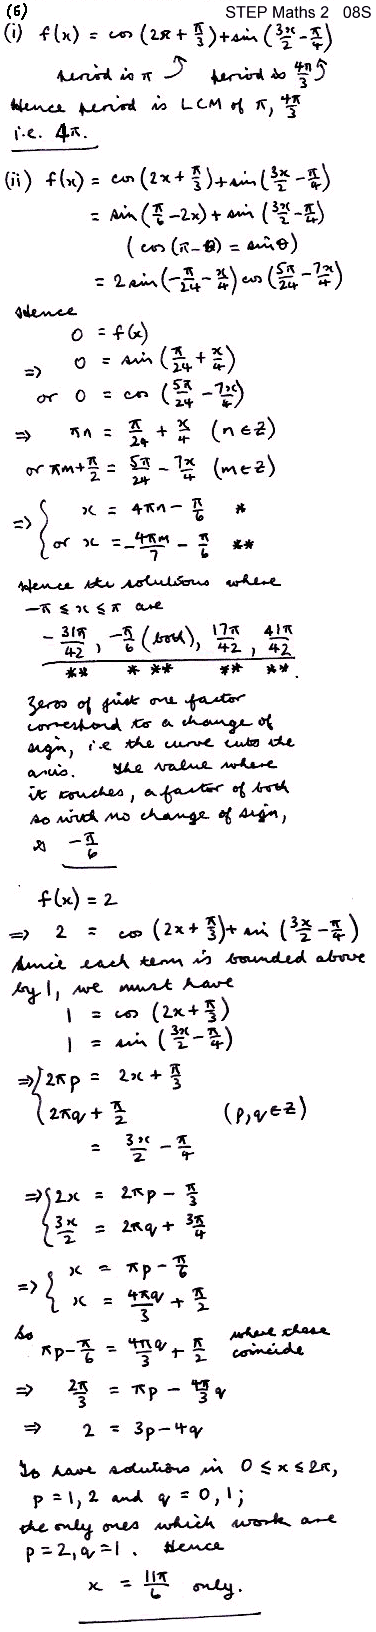 (6) STEP Maths 2 08S
(i) f(x) = cos (2x + π/3) + sin (3x/2 - π/4)
period is π period is 4π/3
Hence period is LCM of π, 4π/3
i.e. 4π.
(ii) f(x) = cos (2x + π/3) + sin (3x/2 - π/4)
= sin (π/6 - 2x) + sin (3x/2 - π/4)
(cos (π - θ) = sin θ)
= 2 sin (-π/24 - x/4) cos (5π/24 - 7x/4)
Hence
0 = f(x)
⇒ 0 = sin (π/24 + x/4)
or 0 = cos (5π/24 - 7x/4)
⇒ πn = π/24 + x/4 (n ∈ Z)
or πm + π/2 = 5π/24 - 7x/4 (m ∈ Z)
⇒ { x = 4πn - π/6 *
or x = -4πm/7 - π/6 **
Hence the solutions where
-π ≤ x ≤ π are
-31π/42, -π/6 (both), 17π/42, 41π/42.
** * ** ** **
Zeros of just one factor
correspond to a change of
sign, i.e the curve cuts the
axis. The value where
it touches, a factor of both
so with no change of sign,
is -π/6
f(x) = 2
⇒ 2 = cos (2x + π/3) + sin (3x/2 - π/4)
Since each term is bounded above
by 1, we must have
1 = cos (2x + π/3)
1 = sin (3x/2 - π/4)
⇒ { 2πp = 2x + π/3
2πq + π/2 (p, q ∈ Z)
= 3x/2 - π/4
⇒ { 2x = 2πp - π/3
3x/2 = 2πq + 3π/4
⇒ { x = πp - π/6
x = 4πq/3 + π/2
So
πp - π/6 = 4πq/3 + π/2 where these coincide
⇒ 2π/3 = πp - 4π/3 q
⇒ 2 = 3p - 4q
To have solutions in 0 ≤ x ≤ 2π,
p = 1, 2 and q = 0, 1;
the only ones which work are
p = 2, q = 1. Hence
x = 11π/6 only.